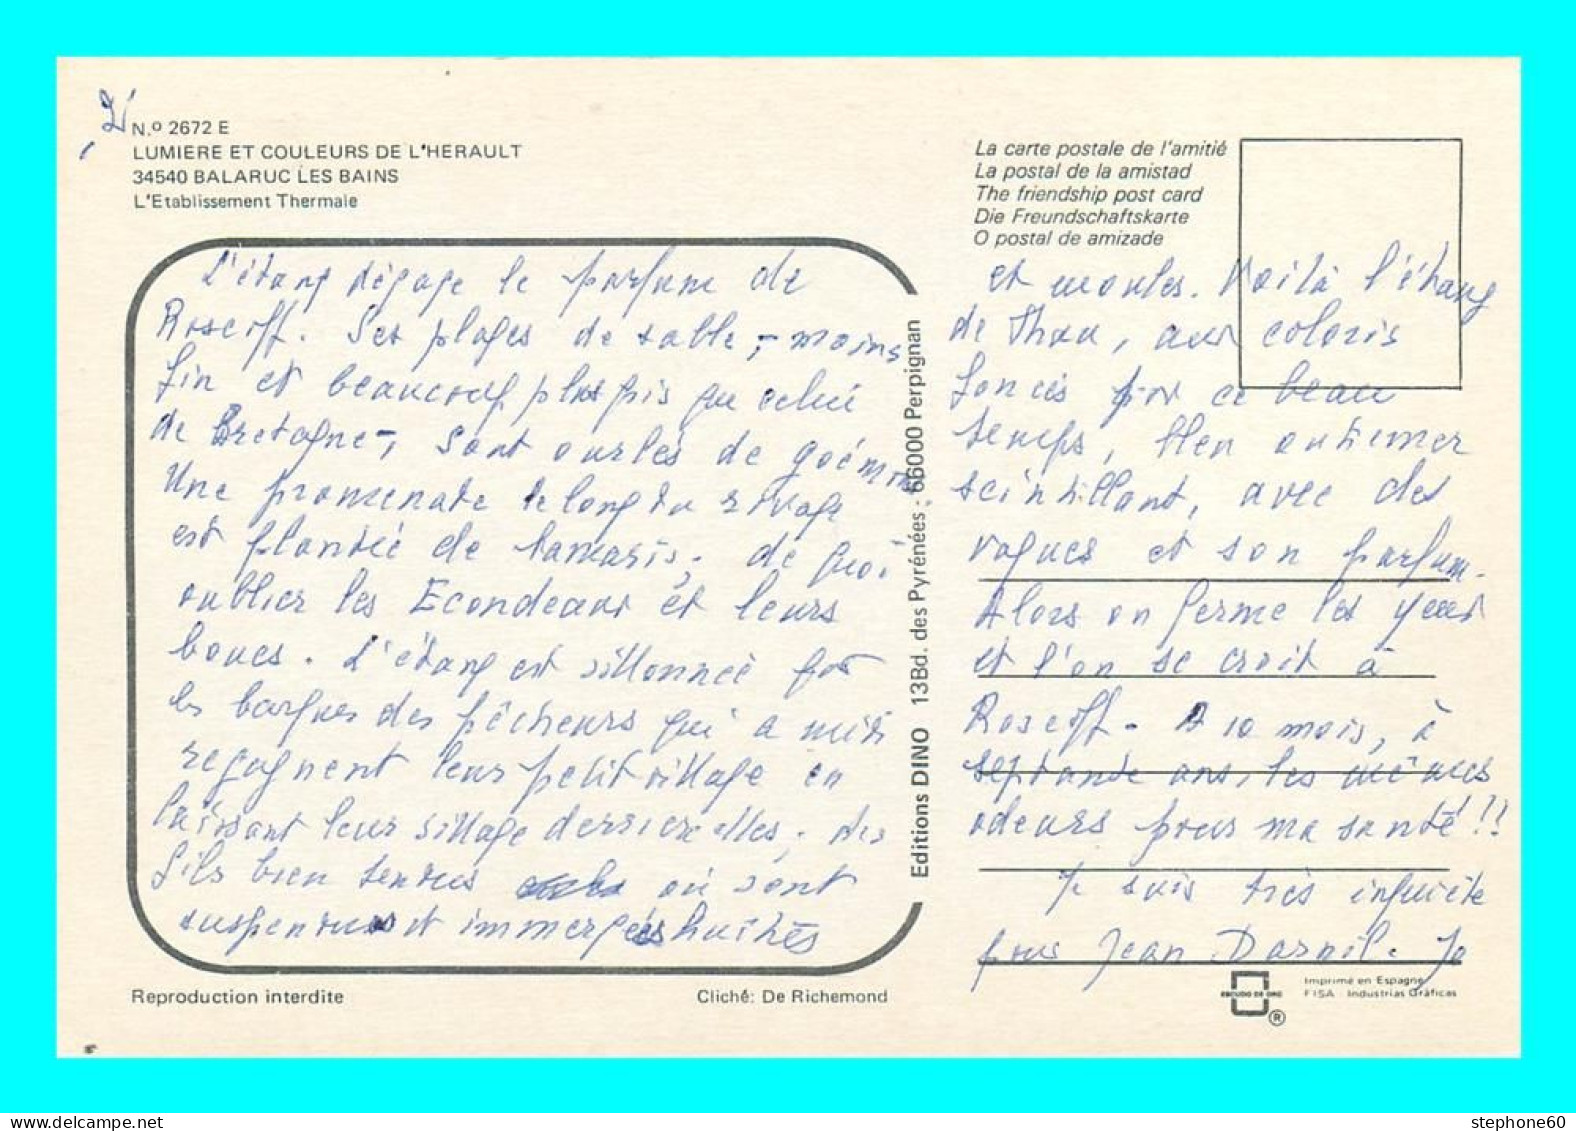 N.º 2672 E
LUMIERE ET COULEURS DE L'HERAULT
34540 BALARUC LES BAINS
L'Etablissement Thermale
L'étang dégage le parfum de
Roscoff. Ses plages de sable, - moins
fin et beaucoup plus gris que celui
de Bretagne -, sont ourlés de goémon
Une promenade le long du rivage
est plantée de tamaris, de quoi
oublier les et leurs
boues. L'étang est sillonnée par
les barques des pêcheurs qui a midi
regagnent leur petit village en
laissant leur sillage derriere elles, des
fils bien tendus où sont
suspendus et immergées huitres
Reproduction interdite
Cliché: De Richemond
Editions DINO 13Bd. des Pyrénées - 66000 Perpignan
La carte postale de l'amitié
La postal de la amistad
The friendship post card
Die Freundschaftskarte
O postal de amizade
et moules. Voilà l'étang
de Thau, aux coloris
foncés par ce beau
temps, bleu outremer
scintillant, avec des
vagues et son parfum.
Alors on ferme les yeux
et l'on se croit à
Roscoff. A 10 mois, à
septante ans, les mêmes
odeurs pour ma santé!!
Je suis très inquiète
pour Jean Je
ESCUDO DE ORO
®
Imprimé en Espagne
FISA - Industrias Gráficas
stephone60